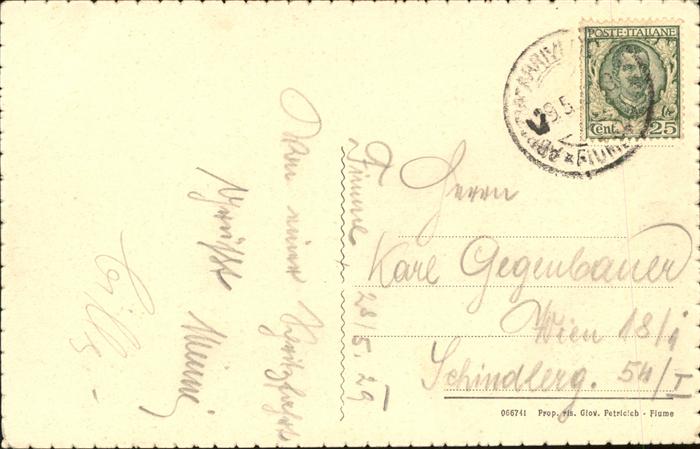 POSTE·ITALIANE
Cent. 25
29.5
FIUME
Fiume 28/5.29
Von einer
grüßt
Cilly
Herrn
Karl Gegenbauer
Wien 18/1
Schindlerg. 54/I
066741 Prop. ris. Giov. Petricich - Fiume